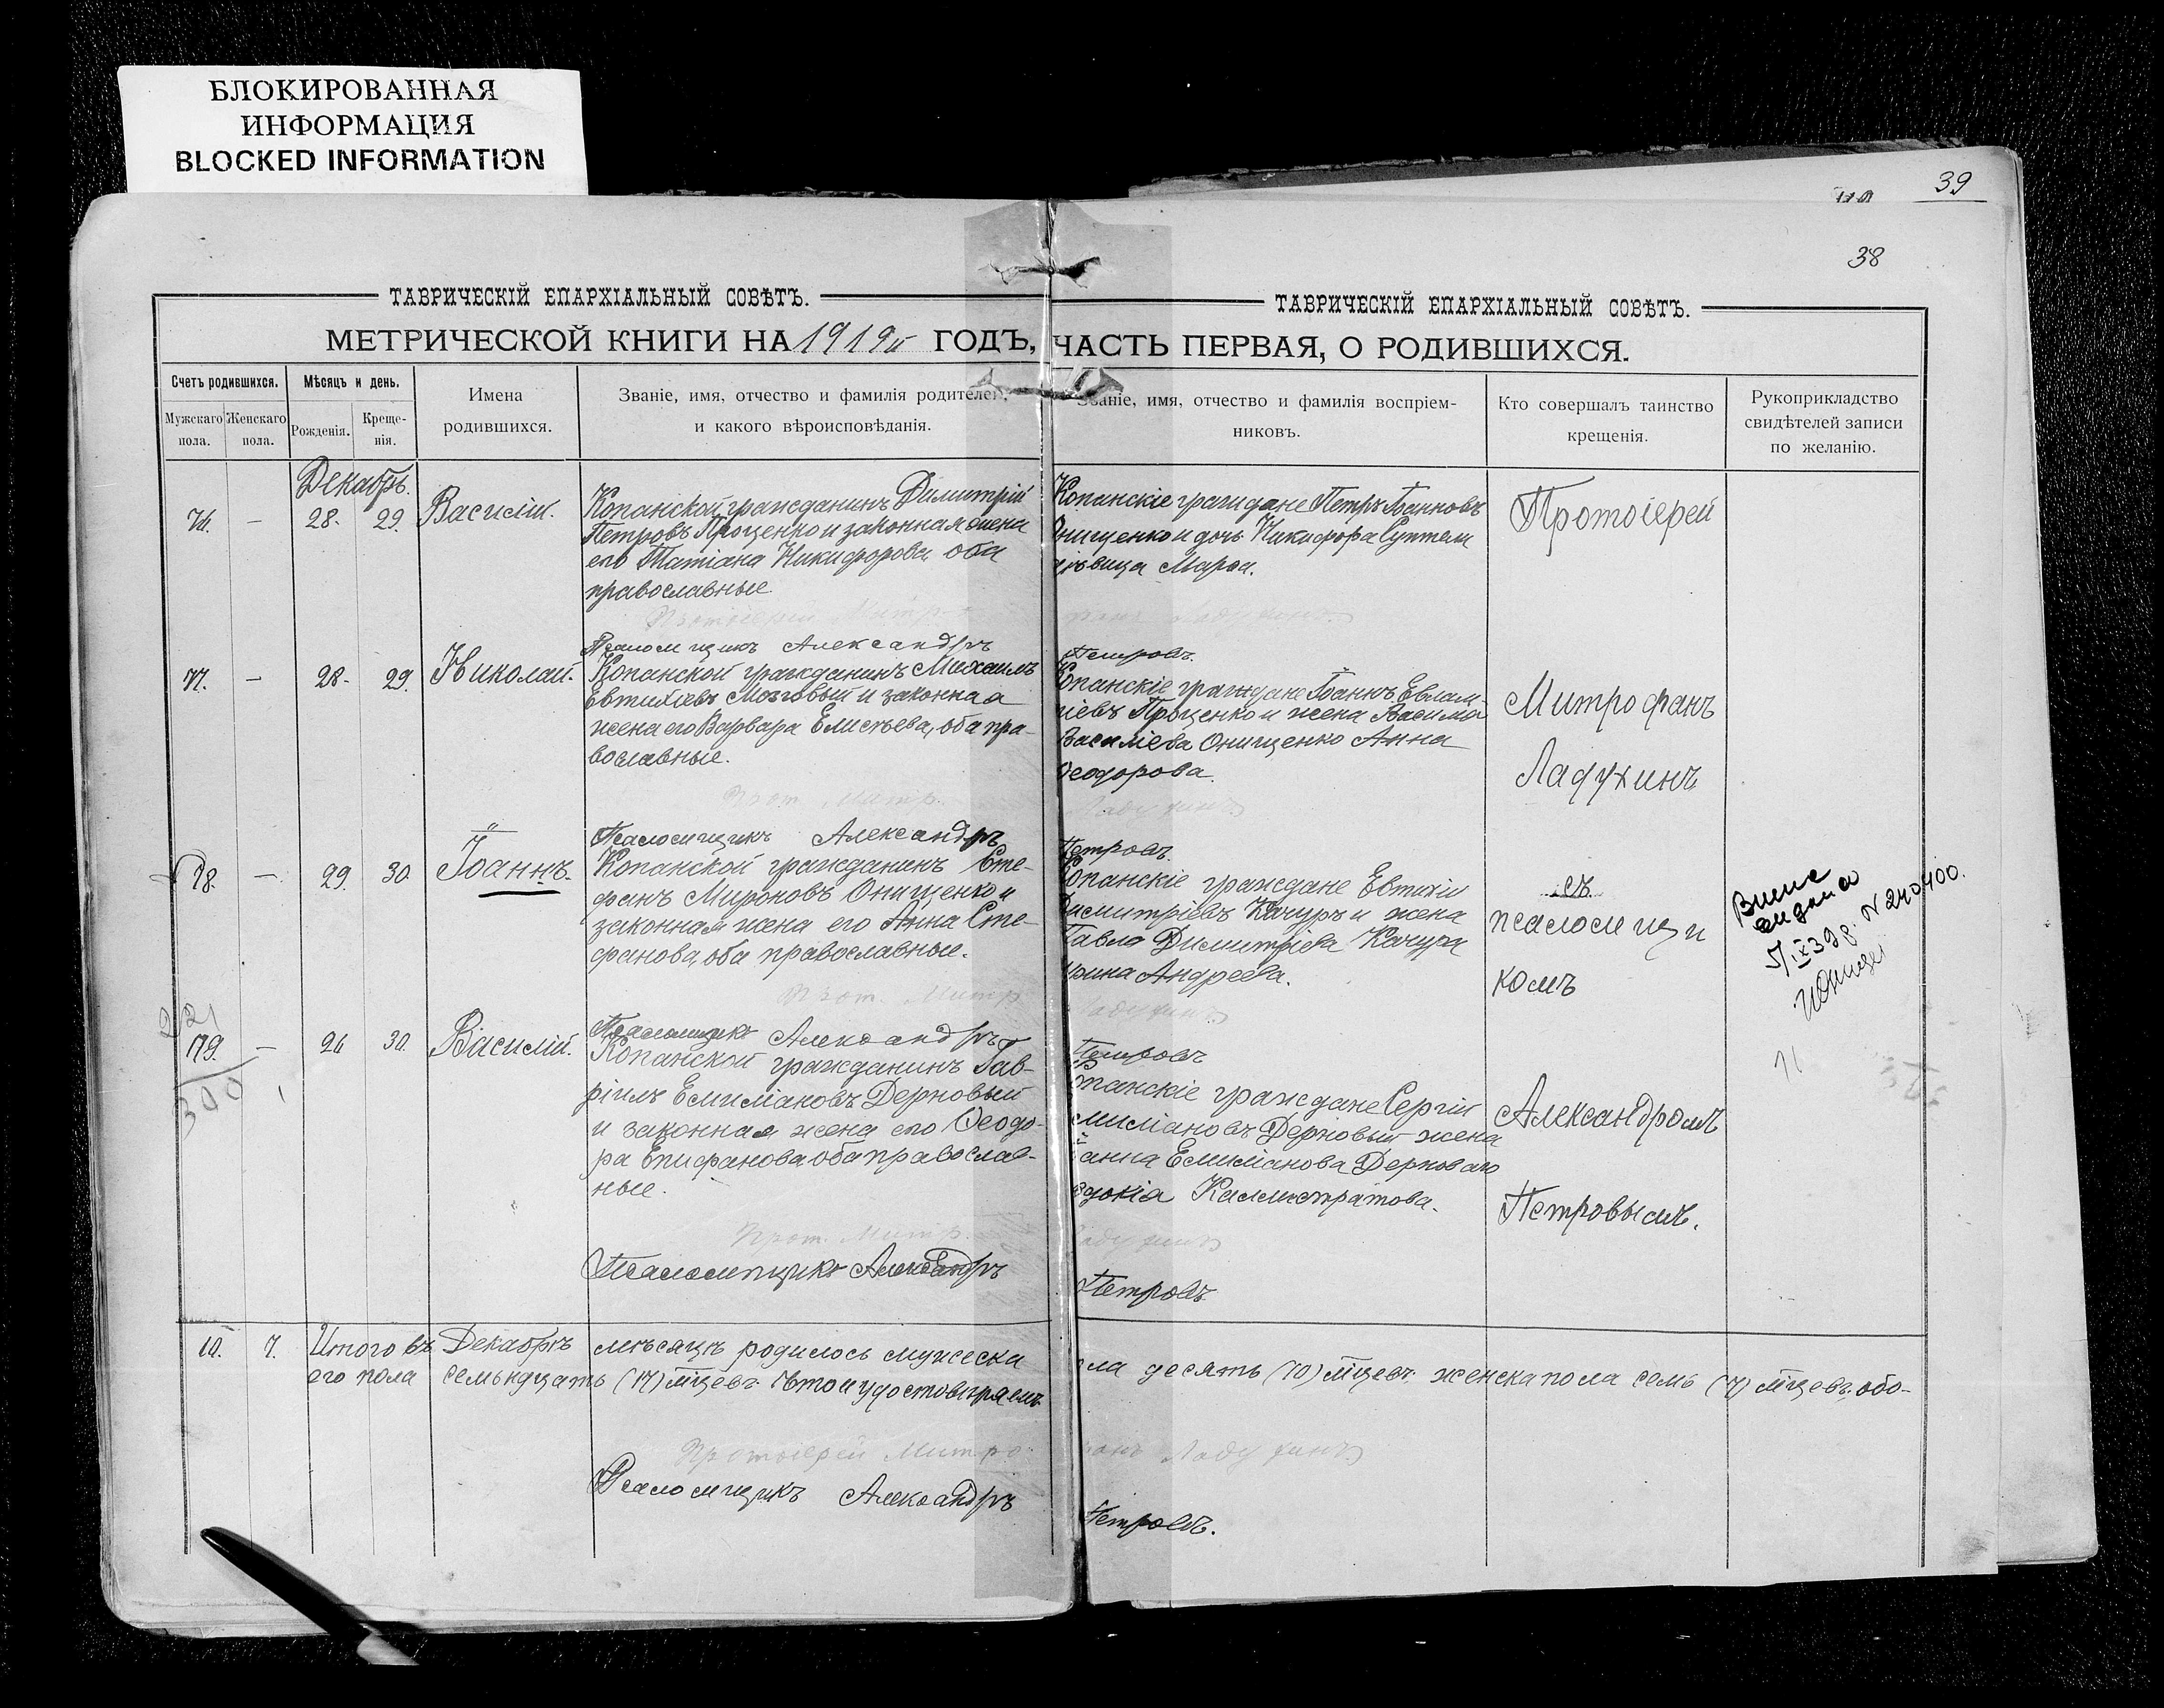 БЛОКИРОВАННАЯ
ИНФОРМАЦИЯ
BLOCKED INFORMATION
39
38
ТАВРИЧЕСКІЙ ЕПАРХІАЛЬНЫЙ СОВѢТЪ.
МЕТРИЧЕСКОЙ КНИГИ НА 1919й ГОДЪ,
Счетъ родившихся.
Мужскаго пола.
Женскаго пола.
Мѣсяцъ и день.
Рожденія.
Креще-
нія.
Имена
родившихся.
Званіе, имя, отчество и фамилія родителей,
и какого вѣроисповѣданія.
ТАВРИЧЕСКІЙ ЕПАРХІАЛЬНЫЙ СОВѢТЪ.
ЧАСТЬ ПЕРВАЯ, О РОДИВШИХСЯ.
Званіе, имя, отчество и фамилія воспріем-
никовъ.
Кто совершалъ таинство
крещенія.
Рукоприкладство
свидѣтелей записи
по желанію.
Декабрь.
28. 29. Василій.
Копанской гражданинъ Димитрій
Петровъ Проценко и законная жена
его Татіана Никифорова, оба
православные
Копанскіе граждане Петръ Іоанновъ
Онищенко и дочь Никифора
дѣвица Марѳа.
Протоіерей
Псаломщикъ Александръ
Петровъ.
77. — 28. 29. Николай.
Копанской гражданинъ Михаилъ
Евтихіевъ Мозговый и законная
жена его Варвара Елисѣева, оба пра-
вославные.
Копанскіе граждане Іоаннъ Евлам-
піевъ Проценко и жена Василія
Василіева Онищенко Анна
Ѳеодорова.
Митрофанъ
Ладухинъ
Прот. Митр.
Ладухинъ
Псаломщикъ Александръ
Петровъ.
78. — 29. 30. Іоаннъ.
Копанской гражданинъ Сте-
фанъ Мироновъ Онищенко и
законная жена его Анна Сте-
фанова, оба православные.
Копанскіе граждане Евтихій
Димитріевъ Качуръ и жена
Павла Димитріева Качура
Ирина Андреева.
съ
псаломщи
комъ
выдано
5/IX 39 г. N 240400.
Прот. Митр
Ладухинъ
Псаломщикъ Александръ
Петровъ
79. — 26 30. Василій.
Копанской гражданинъ Гав-
ріилъ Емиліановъ Дерновый
и законная жена его Ѳеодо-
ра Епифанова оба православ-
ные.
Копанскіе граждане Сергій
Емиліановъ Дерновый жена
Іоанна Емиліанова Дерноваго
Евдокія Каллистратова.
Александромъ
Петровымъ.
300
Прот. Митр.
Ладухинъ
Псаломщикъ Александръ
Петровъ
10. 7. Итого въ Декабрѣ мѣсяцѣ родилось мужеска
пола десять (10) млцевъ женска пола семь (7) млцевъ, обо-
его пола семьнцать (17) млцевъ. Что и удостовѣряемъ
Протоіерей Митро
фанъ Ладухинъ
Псаломщикъ Александръ
Петровъ.